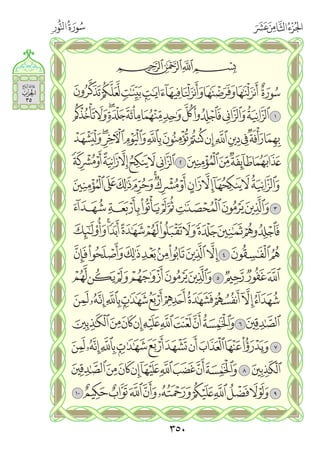 الجُزْءُ الثَّامِنَ عَشَرَ
سُورَةُ النُّورِ
بِسْمِ ٱللَّهِ ٱلرَّحْمَٰنِ ٱلرَّحِيمِ
سُورَةٌ أَنزَلْنَٰهَا وَفَرَضْنَٰهَا وَأَنزَلْنَا فِيهَآ ءَايَٰتٍۭ بَيِّنَٰتٍ لَّعَلَّكُمْ تَذَكَّرُونَ
١ ٱلزَّانِيَةُ وَٱلزَّانِى فَٱجْلِدُوا۟ كُلَّ وَٰحِدٍ مِّنْهُمَا مِا۟ئَةَ جَلْدَةٍ ۖ وَلَا تَأْخُذْكُم
بِهِمَا رَأْفَةٌ فِى دِينِ ٱللَّهِ إِن كُنتُمْ تُؤْمِنُونَ بِٱللَّهِ وَٱلْيَوْمِ ٱلْءَاخِرِ ۖ وَلْيَشْهَدْ
عَذَابَهُمَا طَآئِفَةٌ مِّنَ ٱلْمُؤْمِنِينَ ٢ ٱلزَّانِى لَا يَنكِحُ إِلَّا زَانِيَةً أَوْ مُشْرِكَةً
وَٱلزَّانِيَةُ لَا يَنكِحُهَآ إِلَّا زَانٍ أَوْ مُشْرِكٌ ۚ وَحُرِّمَ ذَٰلِكَ عَلَى ٱلْمُؤْمِنِينَ
٣ وَٱلَّذِينَ يَرْمُونَ ٱلْمُحْصَنَٰتِ ثُمَّ لَمْ يَأْتُوا۟ بِأَرْبَعَةِ شُهَدَآءَ
فَٱجْلِدُوهُمْ ثَمَٰنِينَ جَلْدَةً وَلَا تَقْبَلُوا۟ لَهُمْ شَهَٰدَةً أَبَدًا ۚ وَأُو۟لَٰٓئِكَ
هُمُ ٱلْفَٰسِقُونَ ٤ إِلَّا ٱلَّذِينَ تَابُوا۟ مِنۢ بَعْدِ ذَٰلِكَ وَأَصْلَحُوا۟ فَإِنَّ
ٱللَّهَ غَفُورٌ رَّحِيمٌ ٥ وَٱلَّذِينَ يَرْمُونَ أَزْوَٰجَهُمْ وَلَمْ يَكُن لَّهُمْ
شُهَدَآءُ إِلَّآ أَنفُسُهُمْ فَشَهَٰدَةُ أَحَدِهِمْ أَرْبَعُ شَهَٰدَٰتٍۭ بِٱللَّهِ ۙ إِنَّهُۥ لَمِنَ
ٱلصَّٰدِقِينَ ٦ وَٱلْخَٰمِسَةُ أَنَّ لَعْنَتَ ٱللَّهِ عَلَيْهِ إِن كَانَ مِنَ ٱلْكَٰذِبِينَ
٧ وَيَدْرَؤُا۟ عَنْهَا ٱلْعَذَابَ أَن تَشْهَدَ أَرْبَعَ شَهَٰدَٰتٍۭ بِٱللَّهِ ۙ إِنَّهُۥ لَمِنَ
ٱلْكَٰذِبِينَ ٨ وَٱلْخَٰمِسَةَ أَنَّ غَضَبَ ٱللَّهِ عَلَيْهَآ إِن كَانَ مِنَ ٱلصَّٰدِقِينَ
٩ وَلَوْلَا فَضْلُ ٱللَّهِ عَلَيْكُمْ وَرَحْمَتُهُۥ وَأَنَّ ٱللَّهَ تَوَّابٌ حَكِيمٌ ١٠
الحِزْب
٣٥
٣٥٠